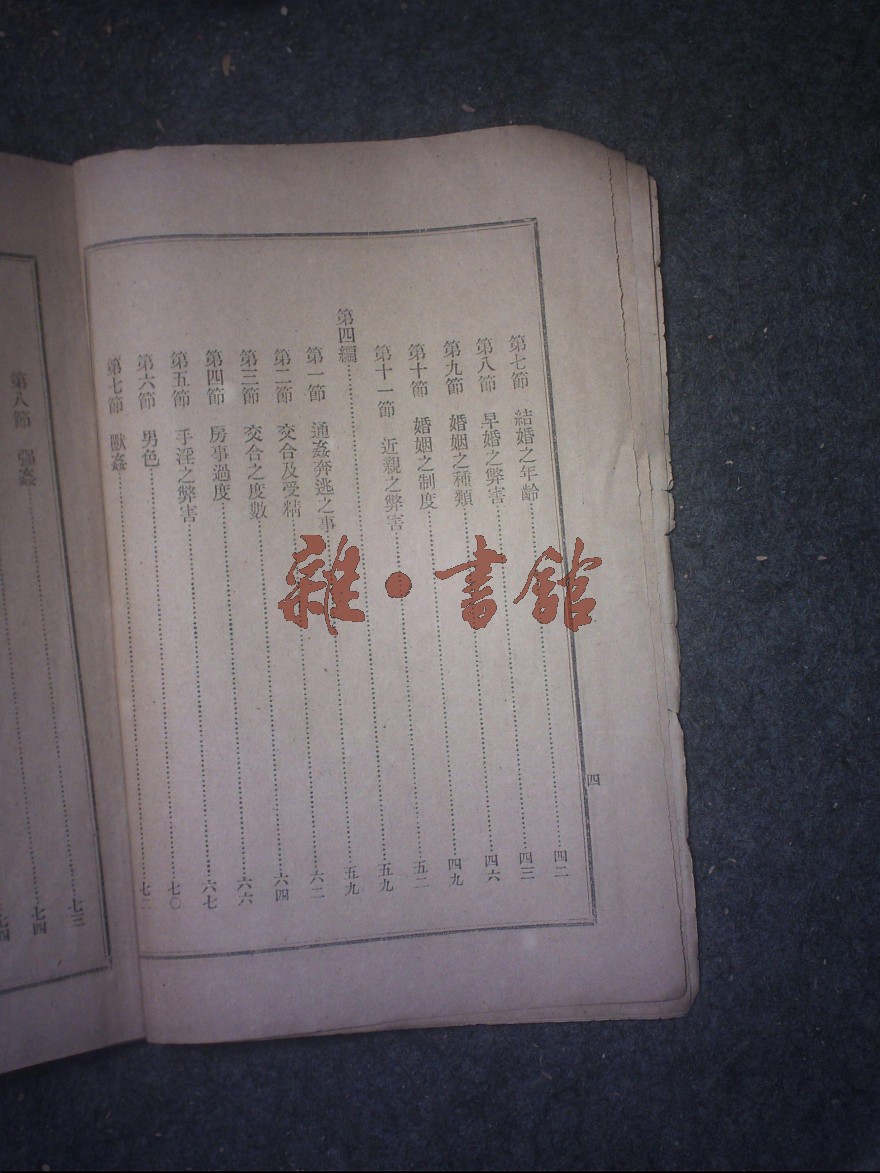 四
第七節　結婚之年齡……四二
第八節　早婚之弊害……四三
第九節　婚姻之種類……四六
第十節　婚姻之制度……四九
第十一節　近親之弊害……五二
第四編……五九
第一節　通姦奔逃之事……五九
第二節　交合及受精……六二
第三節　交合之度數……六四
第四節　房事過度……六六
第五節　手淫之弊害……六七
第六節　男色……七〇
第七節　獸姦……七二
第八節　強姦……七三
七四
七四
雜•書館